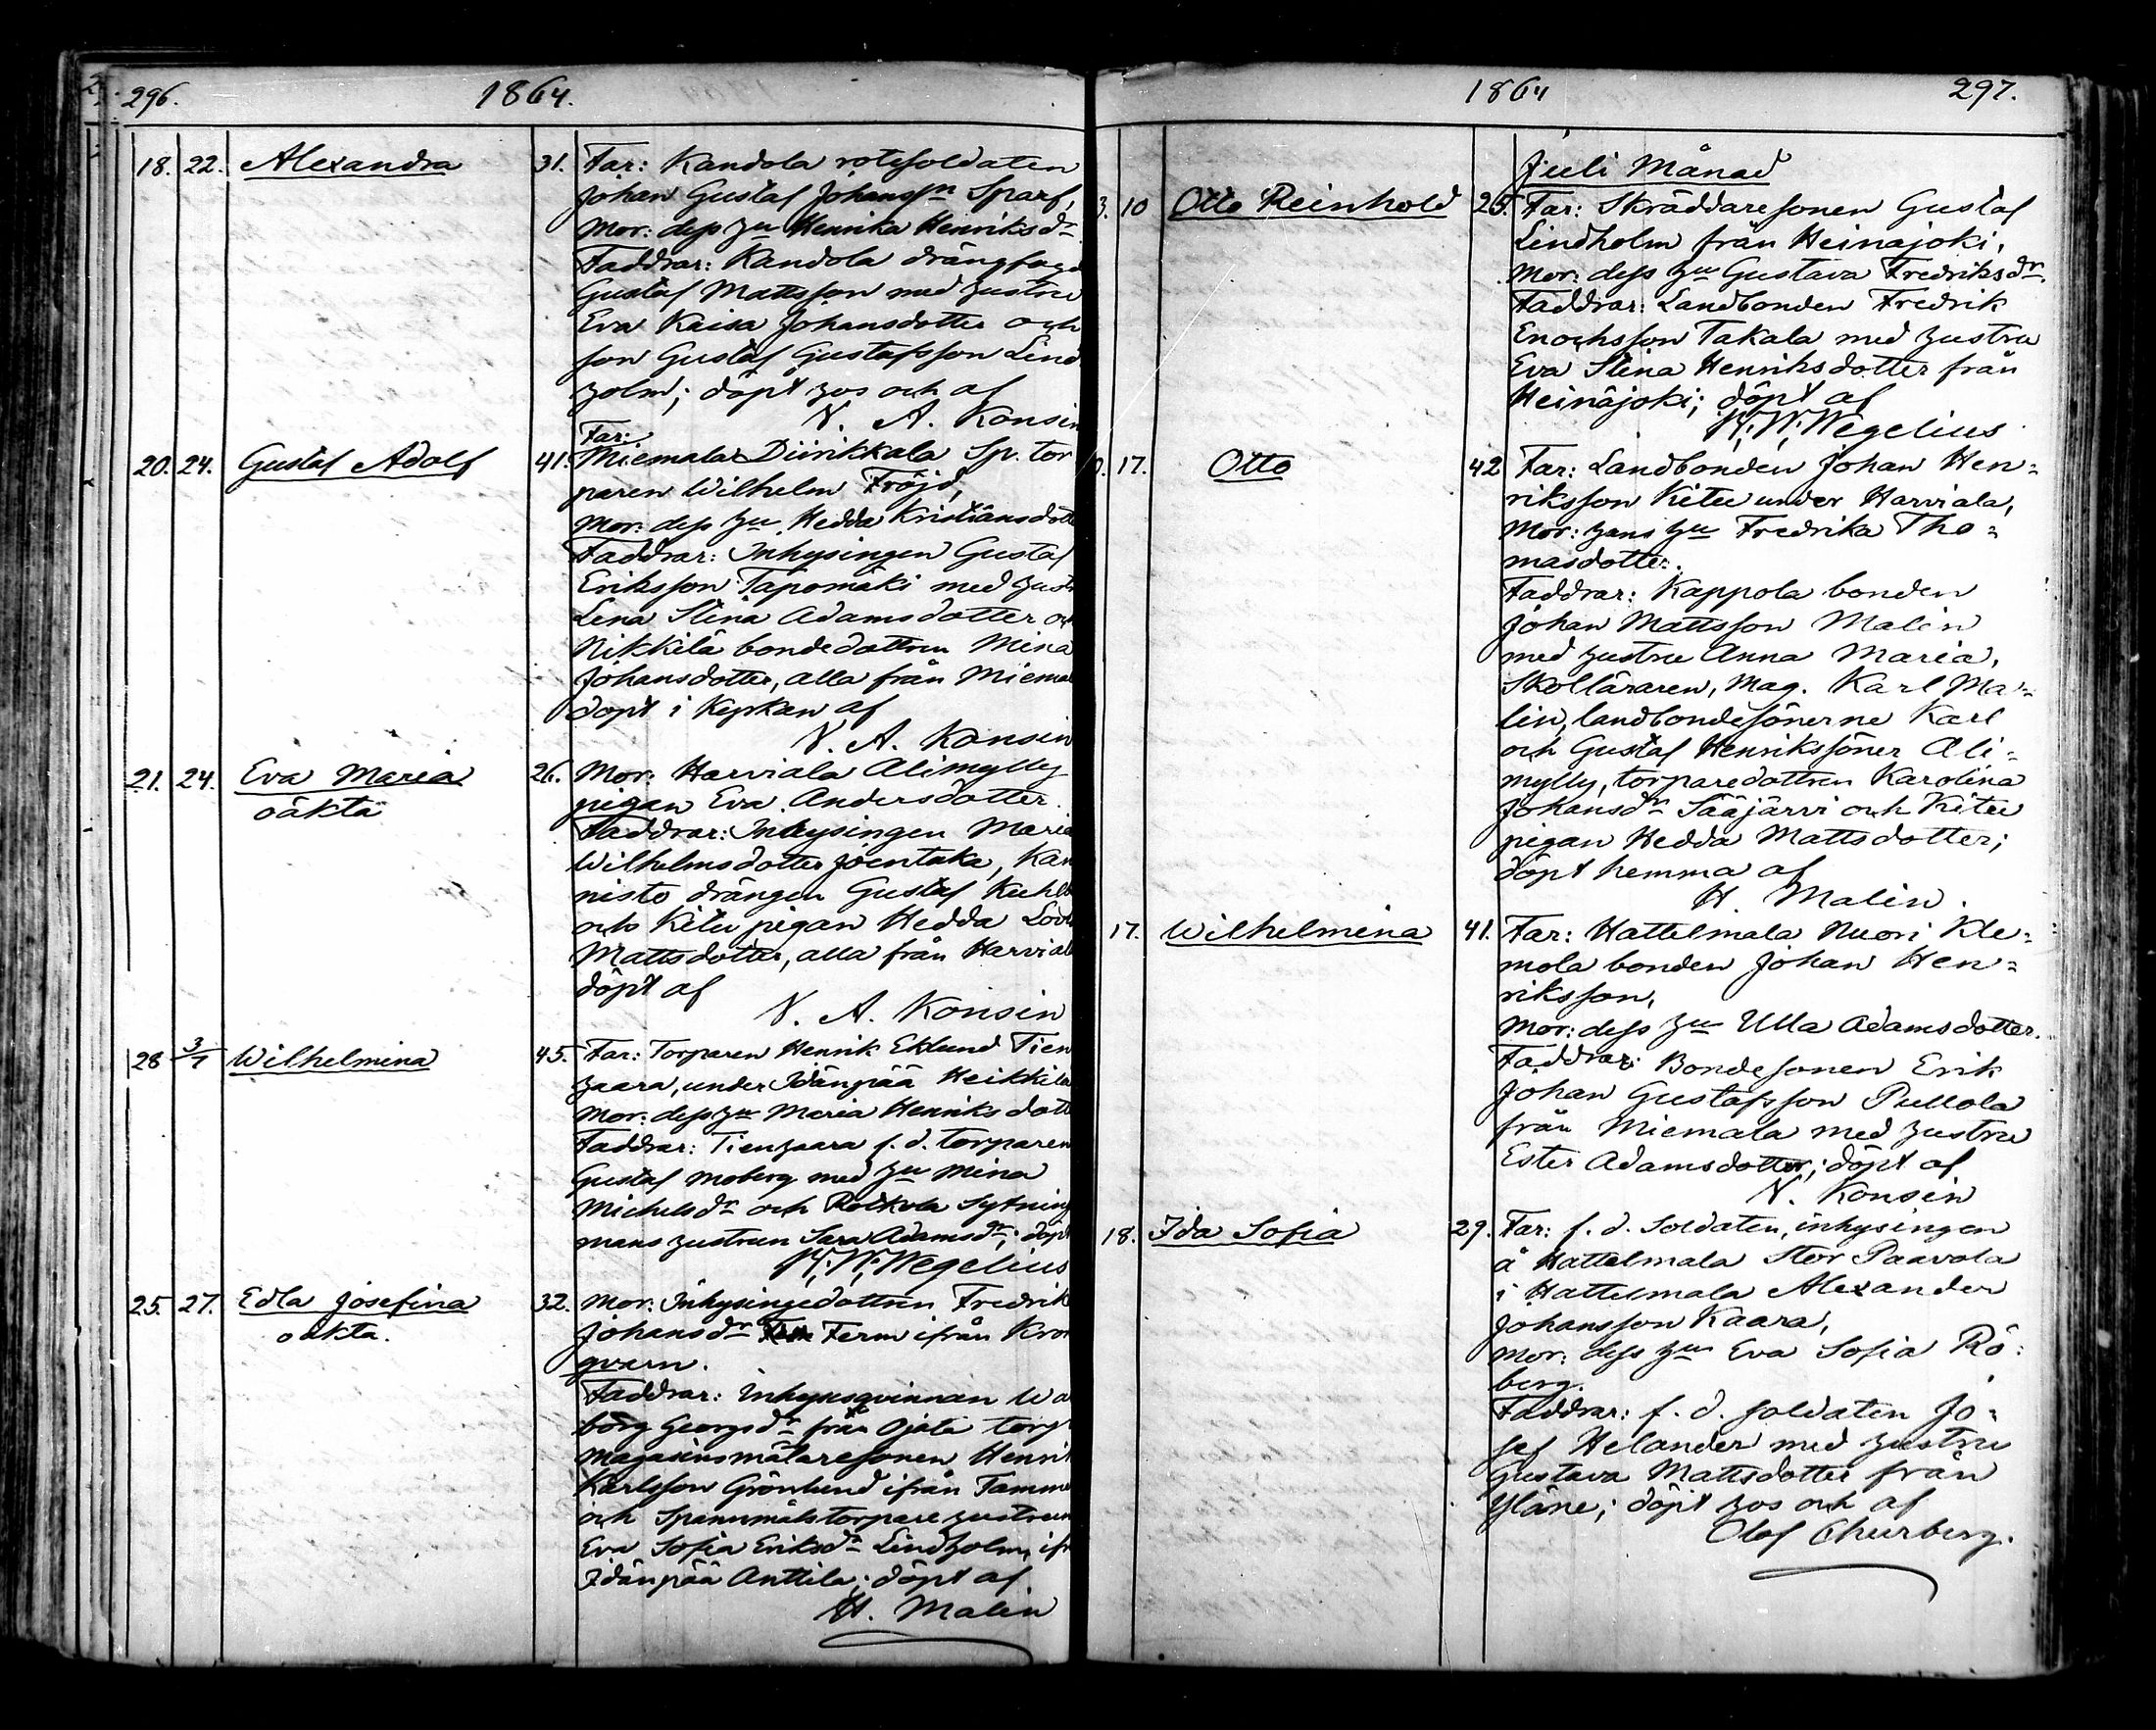 296. 1864.
18. 22. Alexandra 31. Far: Kandola rotesoldaten
Johan Gustaf Johanssn Sparf,
Mor: dess hu Henrika Henriksdr
Faddrar: Kandola drängfogd
Gustaf Mattsson med hustru
Eva Kaisa Johansdotter och
son Gustaf Gustafsson Lind
holm; döpt hos och af
N. A. Konsin
Far:
20. 24. Gustaf Adolf 41. Miemala Diirikkala Sp. tor
paren Wilhelm Fröjd,
Mor: dess hu Hedda Kristiansdotte
Faddrar: Inhysingen Gustaf
Eriksson Tapomäki med hustr
Lena Stina Adamsdotter och
Nikkilä bondedottren Mina
Johansdotter, alla från Miemal
döpt i Kyrkan af
N. A. Konsin
21. 24. Eva Maria 26. Mor: Harviala Alimylly
oäkta pigan Eva Andersdotter.
Faddrar: Inhysingen Maria
Wilhelmsdotter Joentaka, Kan
nisto drängen Gustaf Kuhl
och Kitu pigan Hedda Lov
Mattsdotter, alla från Harvial
döpt af
N. A. Konsin
28 3/7 Wilhelmina 45. Far: Torparen Henrik Eklund Tien
haara, under Idänpää Heikkilä
Mor: dess hu Maria Henriksdott
Faddrar: Tienhaara f. d. torparen
Gustaf Moberg med hu Mina
Michelsdr och Rolkola Sytning
mans hustrun Sara Adamsdr; döpt
K. W. Wegelius
25. 27. Edla Josefina 32. Mor: Inhysingedottren Fredrik
oäkta. Johansdr Term ifrån Kron
qvarn.
Faddrar: Inhysesqvinnan Wa
borg Georgsdr från Ojala torp
Magasinsmätaresonen Henrik
Karlsson Grönlund ifrån Tamm
och Spannmålstorpare hustrun
Eva Sofia Eriksdr Lindholm, ifr
Idänpää Anttila; döpt af
H. Malin
1864 297.
Juli Månad
3. 10 Otto Reinhold 25. Far: Skräddaresonen Gustaf
Lindholm från Heinäjoki,
Mor: dess hu Gustava Fredriksdr.
Faddrar: Landbonden Fredrik
Enochsson Takala med hustru
Eva Stina Henriksdotter från
Heinäjoki; döpt af
K. W. Wegelius
17. Otto 42 Far: Landbonden Johan Hen-
riksson Kitu under Harviala,
Mor: hans hu Fredrika Tho-
masdotter.
Faddrar: Kappola bonden
Johan Mattsson Malin
med hustru Anna Maria,
Skolläraren, Mag. Karl Ma-
lin, landbondesönerne Karl
och Gustaf Henrikssöner Ali-
mylly, torparedottren Karolina
Johansdr Sääjärvi och Kitu
pigan Hedda Mattsdotter;
döpt hemma af
H. Malin.
17. Wilhelmina 41. Far: Hattelmala Nuori Kle-
mola bonden Johan Hen-
riksson,
Mor: dess hu Ulla Adamsdotter.
Faddrar: Bondesonen Erik
Johan Gustafsson Pullola
från Miemala med hustru
Ester Adamsdotter; döpt af
N. Konsin
18. Ida Sofia 29. Far: f. d. Soldaten, inhysingen
å Hattelmala Stor Paavola
i Hattelmala Alexander
Johansson Kaara,
Mor: dess hu Eva Sofia Rö-
berg.
Faddrar: f. d. soldaten Jo-
sef Helander med hustru
Gustava Mattsdotter från
Yläne; döpt hos och af
Olof Churberg.